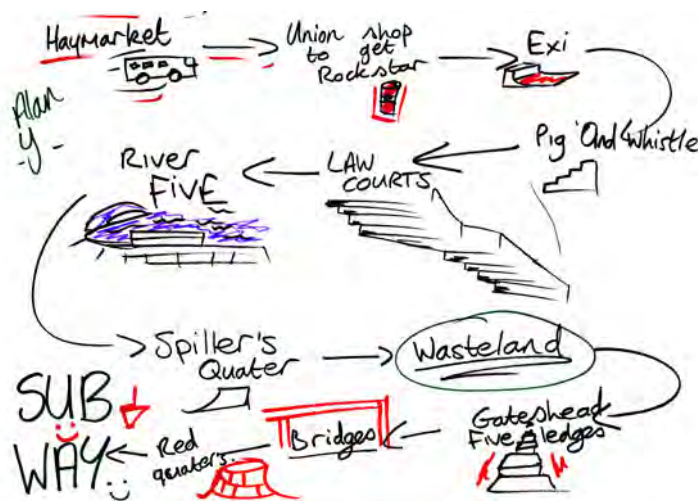 Haymarket
Union shop
to get
Rockstar
Exi
Plan
y
Pig 'And Whistle
LAW
COURTS
River
FIVE
Spiller's
Quater
Wasteland
Gateshead
Five ledges
Bridges
Red
quaters
SUB
WAY